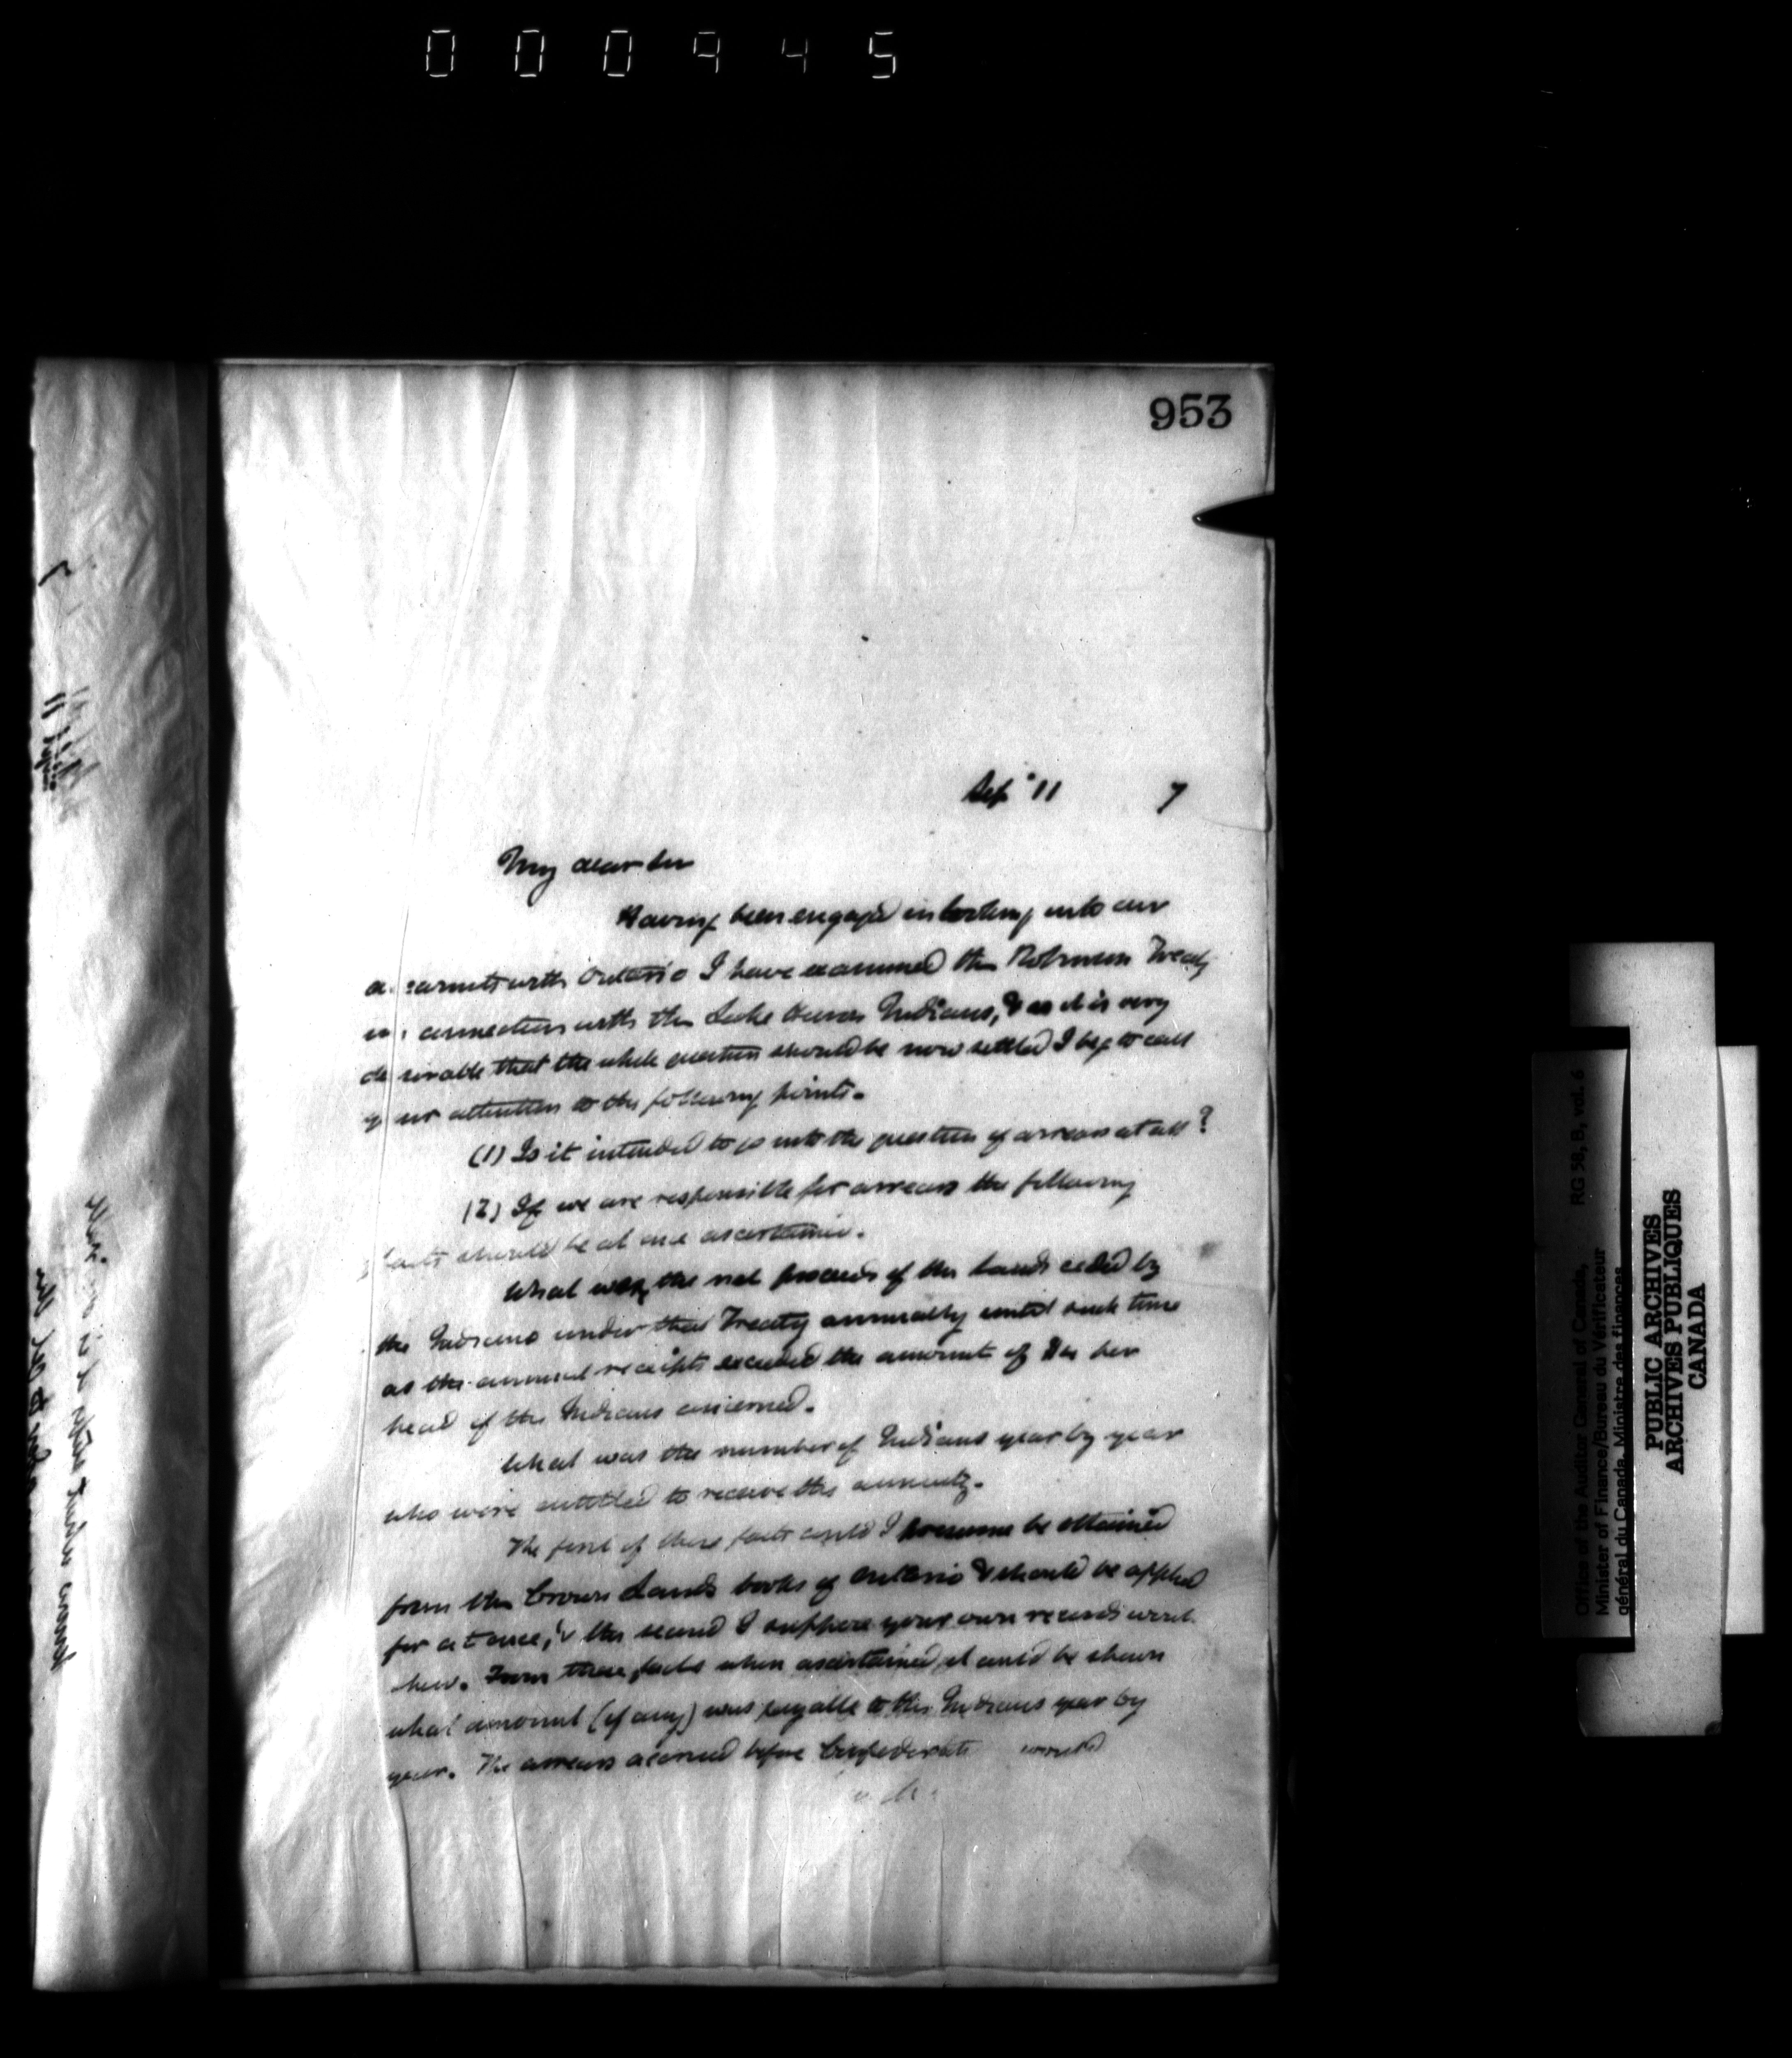 000945
953
Sep 11 7
My dear Sir
Having been engaged in looking into our
accounts with Ontario I have examined the Robinson Treaty
in connection with the Lake Huron Indians, & as it is very
desirable that the whole question should be now settled I beg to call
your attention to the following points.
(1) Is it intended to go into the question of arrears at all?
(2) If we are responsible for arrears the following
facts should be at once ascertained.
What was the net proceeds of the lands ceded by
the Indians under that Treaty annually until such time
as the annual receipts exceeded the amount of per
head of the Indians concerned.
What was the number of Indians year by year
who were entitled to receive this annuity.
The first of these facts could I presume be obtained
from the Crown Lands books of Ontario & should be applied
for at once, & the second I suppose your own records would
shew. From these facts when ascertained, it could be shewn
what amount (if any) was payable to the Indians year by
year. The arrears accrued before Confederation would
Office of the Auditor General of Canada, RG 58, B, vol. 6
Minister of Finance/Bureau du Vérificateur
général du Canada, Ministre des finances
PUBLIC ARCHIVES
ARCHIVES PUBLIQUES
CANADA